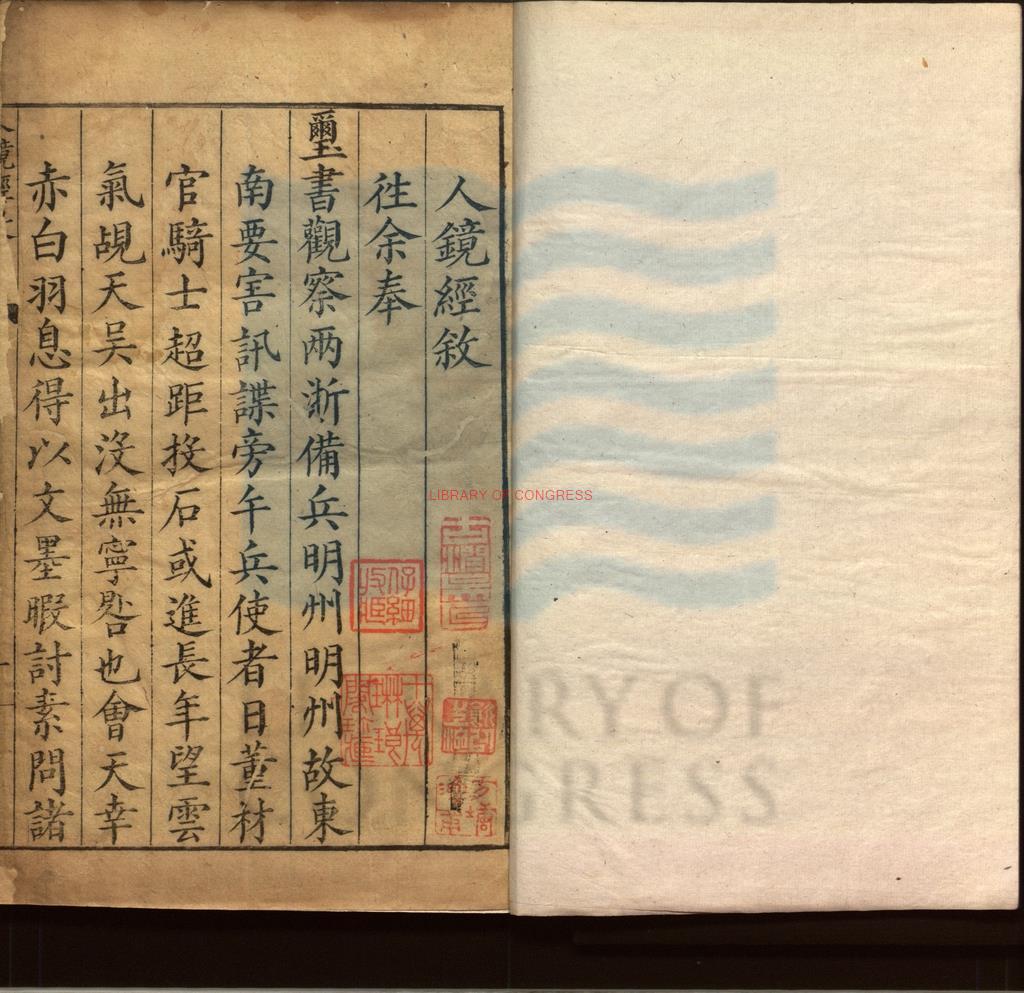 人鏡經敘
徃余奉
璽書觀察兩浙備兵明州明州故東
南要害訊諜旁午兵使者日蕫材
官騎士超距投石或進長年望雲
氣覘天吴出沒無寧晷也會天幸
赤白羽息得以文墨暇討素問諸
LIBRARY OF CONGRESS
LIBRARY OF
CONGRESS